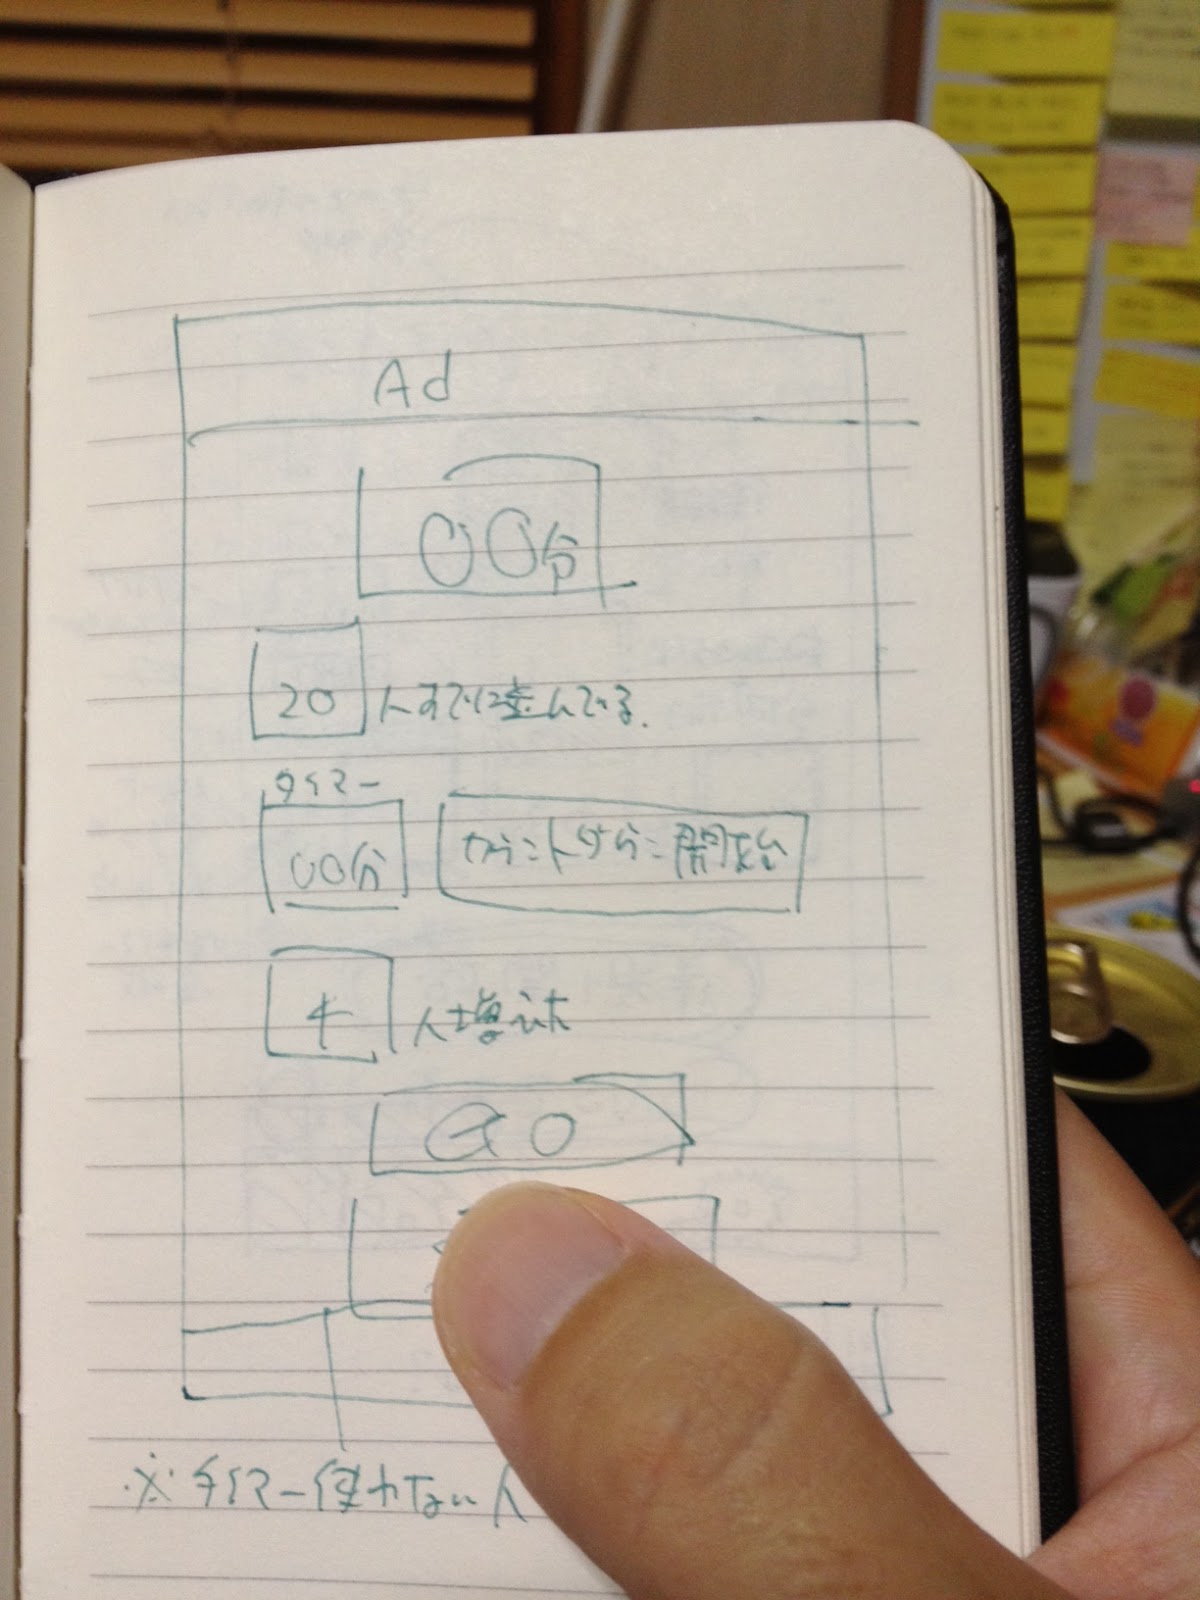 Ad
00分
20 人すでに並んでる.
タイマー
00分 カウントダウン開始
4 人増えた
GO
※タイマー使わない人